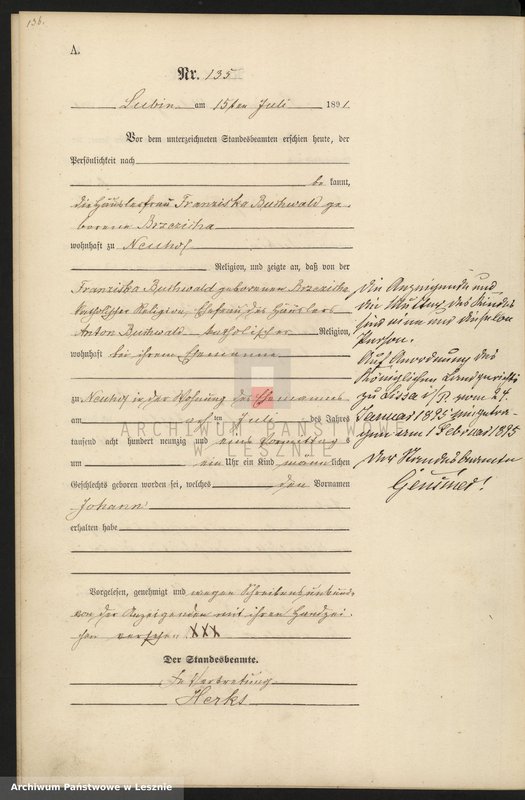 136.
A.
Nr. 135
Lubin am 15ten Juli 1891.
Vor dem unterzeichneten Standesbeamten erschien heute, der
Persönlichkeit nach
be kannt,
die Häuslerfrau Franziska Buchwald ge-
borene Brzezicha
wohnhaft zu Neuhof
Religion, und zeigte an, daß von der
Franziska Buchwald geborenen Brzezicha
katholischer Religion, Ehefrau des Häuslers
Anton Buchwald katholischer Religion,
wohnhaft bei ihrem Ehemanne
zu Neuhof in der Wohnung des Ehemannes
am ten Juli des Jahres
tausend acht hundert neunzig und eins Vormittags
um ein Uhr ein Kind männlichen
Geschlechts geboren worden sei, welches den Vornamen
Johann
erhalten habe
Vorgelesen, genehmigt und wegen Schreibensunkunde
von der Anzeigenden mit ihrem Handzei-
chen versehen XXX
Der Standesbeamte.
In Vertretung
Herks
die Anzeigende und
die Mutter des Kindes
sind eine und dieselbe
Person.
Auf Anordnung des
Königlichen Landgerichts
zu Lissa i/P. vom 24
Januar 1895 eingetra-
gen am 1 Februar 1895
Der Standesbeamte
ARCHIWUM PAŃSTWOWE
W LESZNIE
Archiwum Państwowe w Lesznie